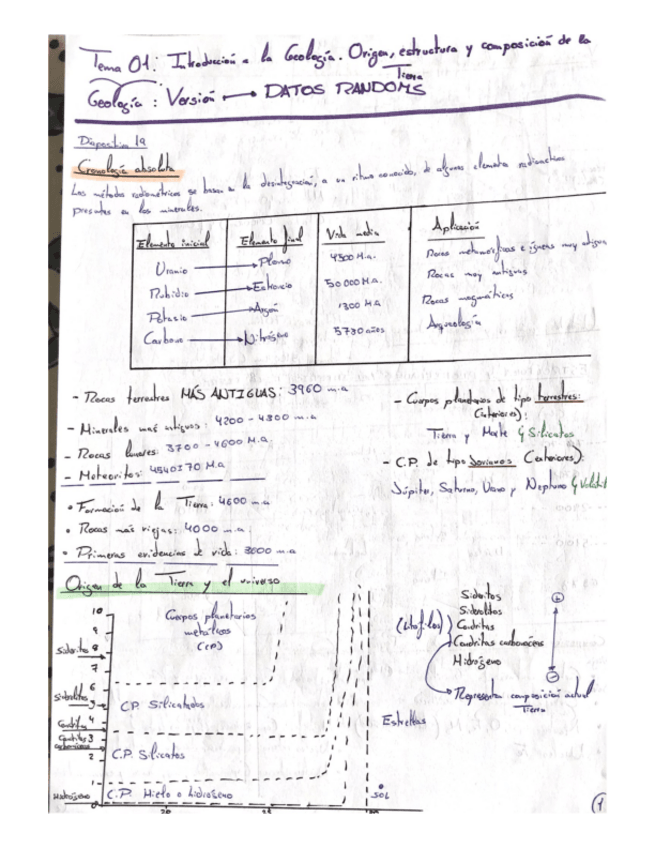 Tema 01: Introducción a la Geología. Origen, estructura y composición de la
Tierra
Geología: Versión → DATOS RANDOMS
Diapositiva 19
Cronología absoluta
Los métodos radiométricos se basan en la desintegración, a un ritmo conocido, de algunos elementos radioactivos
presentes en los minerales.
Elemento inicial Elemento final Vida media Aplicación
Uranio → Plomo 4500 M.a. Rocas metamórficas e ígneas muy antiguas
Rubidio → Estroncio 50000 M.a. Rocas muy antiguas
Potasio → Argón 1300 M.a. Rocas magmáticas
Carbono → Nitrógeno 5730 años Arqueología
- Rocas terrestres MÁS ANTIGUAS: 3960 m.a
- Minerales más antiguos: 4200 - 4300 m.a
- Rocas lunares: 3700 - 4600 M.a.
- Meteoritos: 4540±70 M.a
• Formación de la Tierra: 4600 m.a
• Rocas más viejas: 4000 m.a.
• Primeras evidencias de vida: 3600 m.a
- Cuerpos planetarios de tipo terrestres:
Tierra y Marte Silicatos
- C.P. de tipo Jovianos (exteriores):
Júpiter, Saturno, Urano y Neptuno
Origen de la Tierra y el universo
10
9
Sideritos 8
7
6
Siderolitos 5
Condritas 4
Condritas 3
carbonáceas
2
1
Hidrógeno 0
Cuerpos planetarios
metálicos
(CP)
C.P. Silicatados
C.P. Silicatos
C.P. Hielo o hidrógeno
Estrellas
SOL
Sideritos
Siderolitos
(Litófilos) Condritas
Condritas carbonáceas
Hidrógeno
+
-
Representa composición actual
Tierra
1